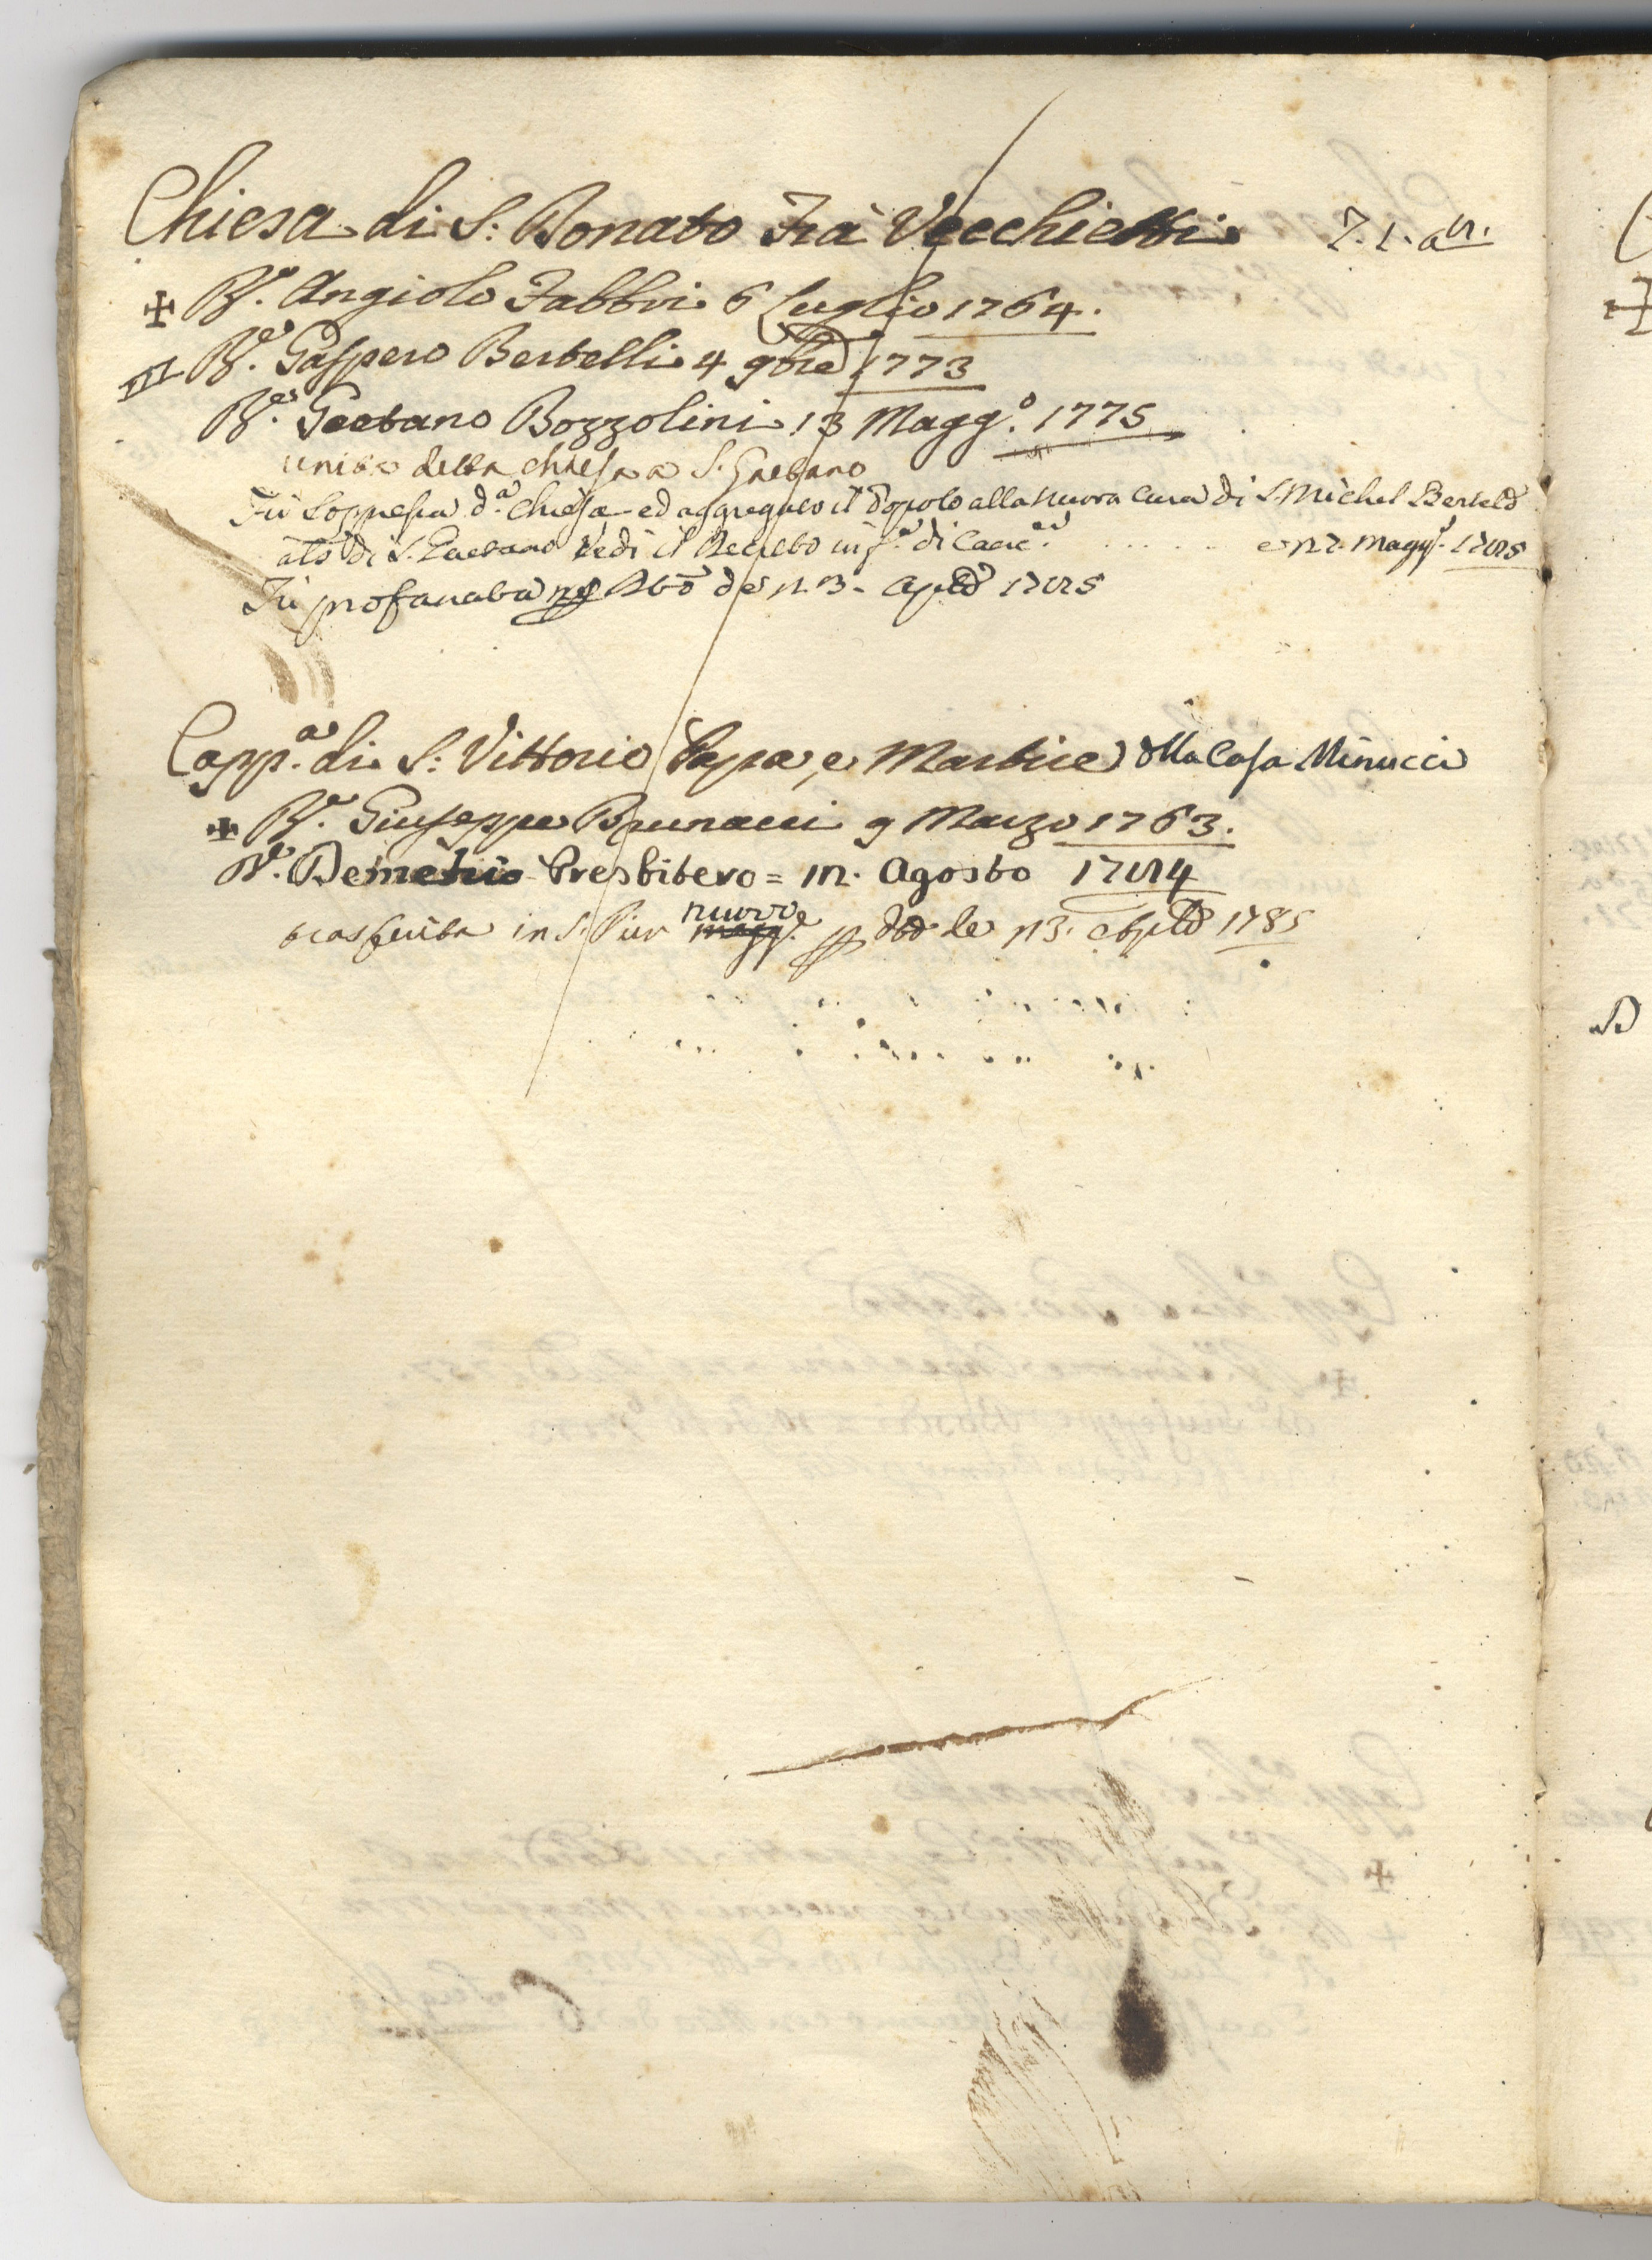 Chiesa di S: Donato Frà Vecchietti
✠ R.e Angiolo Fabbri 6 Luglio 1764.
R.e Gaspero Bertelli 4 9bre 1773
R.e Gaetano Bozzolini 13 Magg.o 1775
unita detta chiesa a S. Gaetano
Fù Soppressa d.a Chiesa ed aggregato il Popolo alla nuova Cura di S. Michel Berteld
di S. Gaetano Vedi il Decreto di Magg. 1785
Fù profanata de 13 Aple 1785
Capp.a di S: Vittorio Papa, e Martire della Casa Minucci
✠ R.e Giuseppe Brunacci 9 Marzo 1763.
R.e Demetrio Presbitero = Agosto 1784
trasferita in S. Pier nuovo de 13. Aple 1785